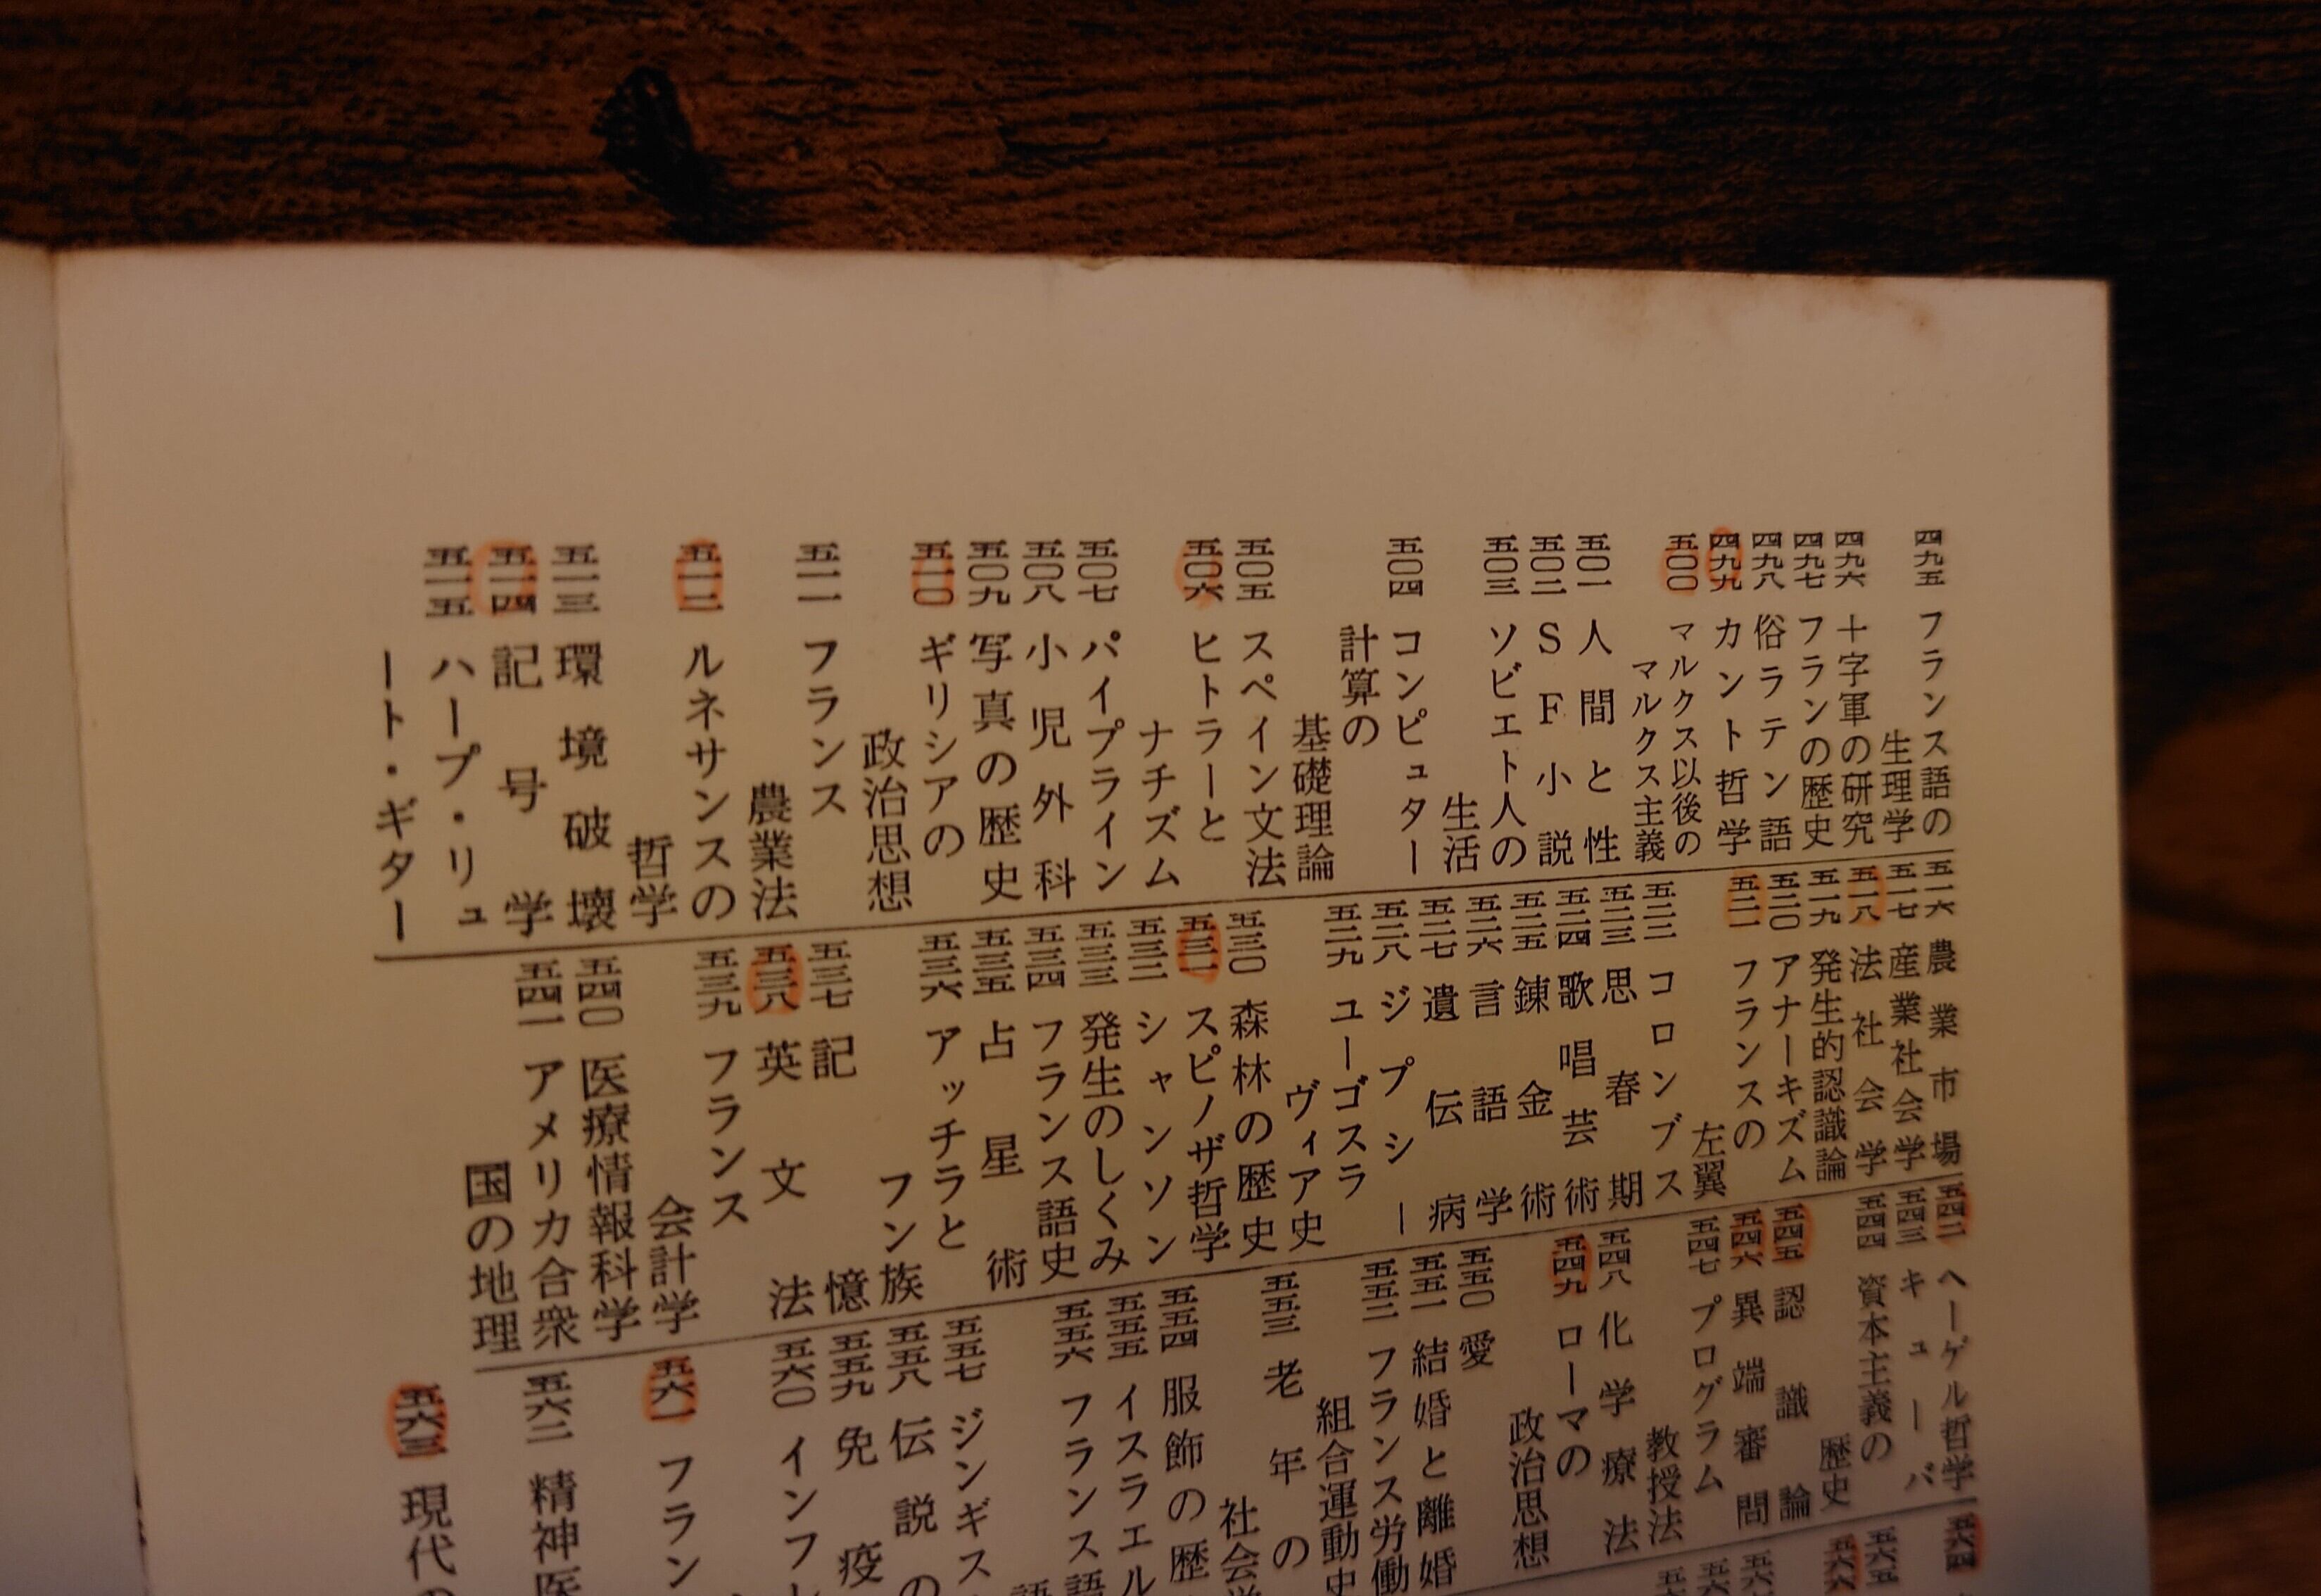 四九五 フランス語の
生理学
四九六 十字軍の研究
四九七 フランの歴史
四九八 俗ラテン語
四九九 カント哲学
五〇〇 マルクス以後の
マルクス主義
五〇一 人間と性
五〇二 SF小説
五〇三 ソビエト人の
生活
五〇四 コンピューター
計算の
基礎理論
五〇五 スペイン文法
五〇六 ヒトラーと
ナチズム
五〇七 パイプライン
五〇八 小児外科
五〇九 写真の歴史
五一〇 ギリシアの
政治思想
五一一 フランス
農業法
五一二 ルネサンスの
哲学
五一三 環境破壊
五一四 記号学
五一五 ハープ・リュ
ート・ギター
五一六 農業市場
五一七 産業社会学
五一八 法社会学
五一九 発生的認識論
五二〇 アナーキズム
五二一 フランスの
左翼
五二二 コロンブス
五二三 思春期
五二四 歌唱芸術
五二五 錬金術
五二六 言語学
五二七 遺伝病
五二八 ジプシー
五二九 ユーゴスラ
ヴィア史
五三〇 森林の歴史
五三一 スピノザ哲学
五三二 シャンソン
五三三 発生のしくみ
五三四 フランス語史
五三五 占星術
五三六 アッチラと
フン族
五三七 記憶
五三八 英文法
五三九 フランス
会計学
五四〇 医療情報科学
五四一 アメリカ合衆
国の地理
五四二 ヘーゲル哲学
五四三 キューバ
五四四 資本主義の
歴史
五四五 認識論
五四六 異端審問
五四七 プログラム
教授法
五四八 化学療法
五四九 ローマの
政治思想
五五〇 愛
五五一 結婚と離婚
五五二 フランス労働
組合運動史
五五三 老年の
社会学
五五四 服飾の歴
五五五 イスラエル
五五六 フランス語
五五七 ジンギス
五五八 伝説の
五五九 免疫
五六〇 インフレ
五六一 フラン
五六二 精神医
五六三 現代の
五六四
五六五
五六六